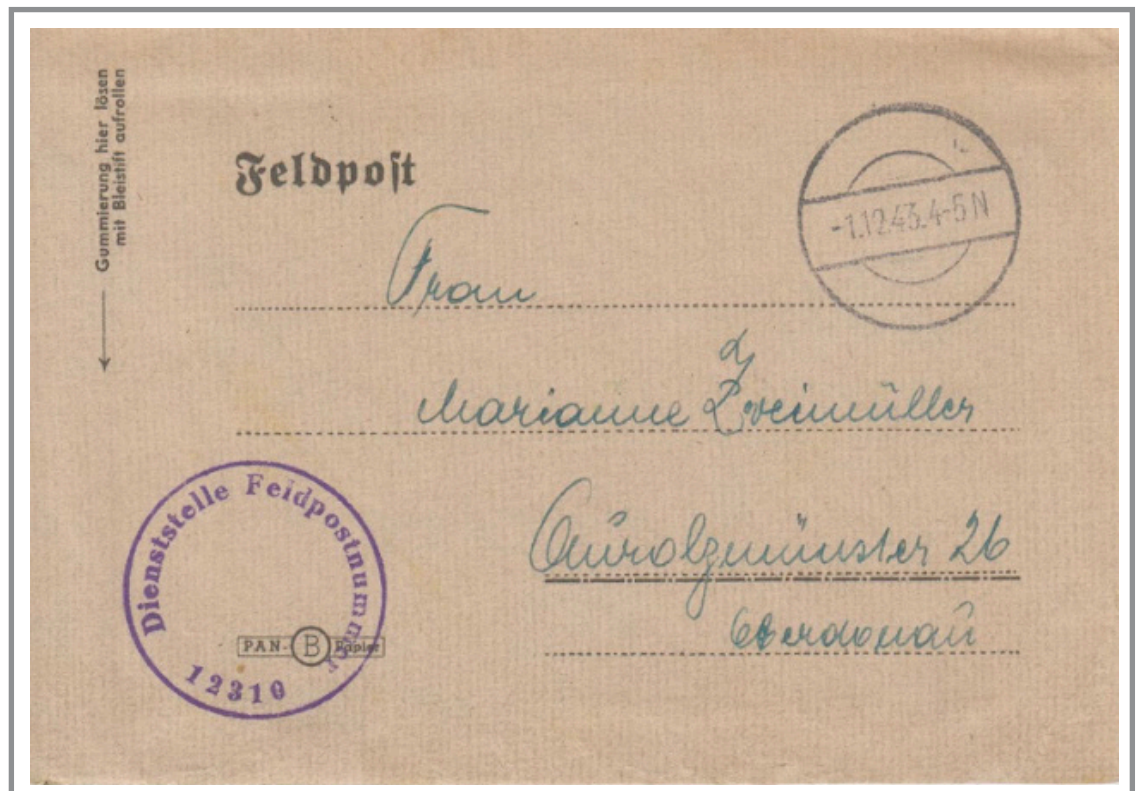 Gummierung hier lösen
mit Bleistift aufrollen
Feldpost
-1.12.43.4-5 N
Frau
Marianne Zweimüller
Aurolzmünster 26
Oberdonau
Dienststelle Feldpostnummer
12310
PAN-(B) Papier